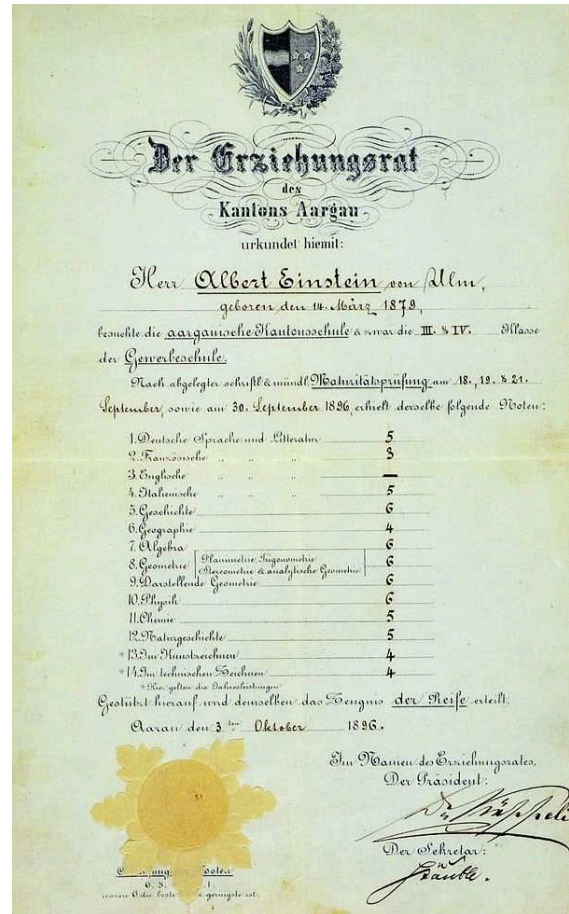 Der Erziehungsrat
des
Kantons Aargau
urkundet hiemit:
Herr Albert Einstein von Ulm,
geboren den 14. März 1879,
besuchte die aargauische Kantonsschule & zwar die III. & IV. Klasse
der Gewerbeschule.
Nach abgelegter schriftl. & mündl. Maturitätsprüfung am 18., 19. & 21.
September, sowie am 30. September 1896, erhielt derselbe folgende Noten:
1. Deutsche Sprache und Litteratur 5
2. Französische " " " 3
3. Englische " " " —
4. Italienische " " " 5
5. Geschichte 6
6. Geographie 4
7. Algebra 6
8. Geometrie Planimetrie, Trigonometrie 6
Stereometrie & analytische Geometrie
9. Darstellende Geometrie 6
10. Physik 6
11. Chemie 5
12. Naturgeschichte 5
* 13. Im Kunstzeichnen 4
* 14. Im technischen Zeichnen 4
* Hier gelten die Jahresleistungen
Gestützt hierauf wird demselben das Zeugnis der Reife erteilt.
Aarau den 3ten Oktober 1896.
Im Namen des Erziehungsrates,
Der Präsident:
Der Sekretär:
Stäuble.
6. 5. 1
wovon 6 die beste geringste ist.